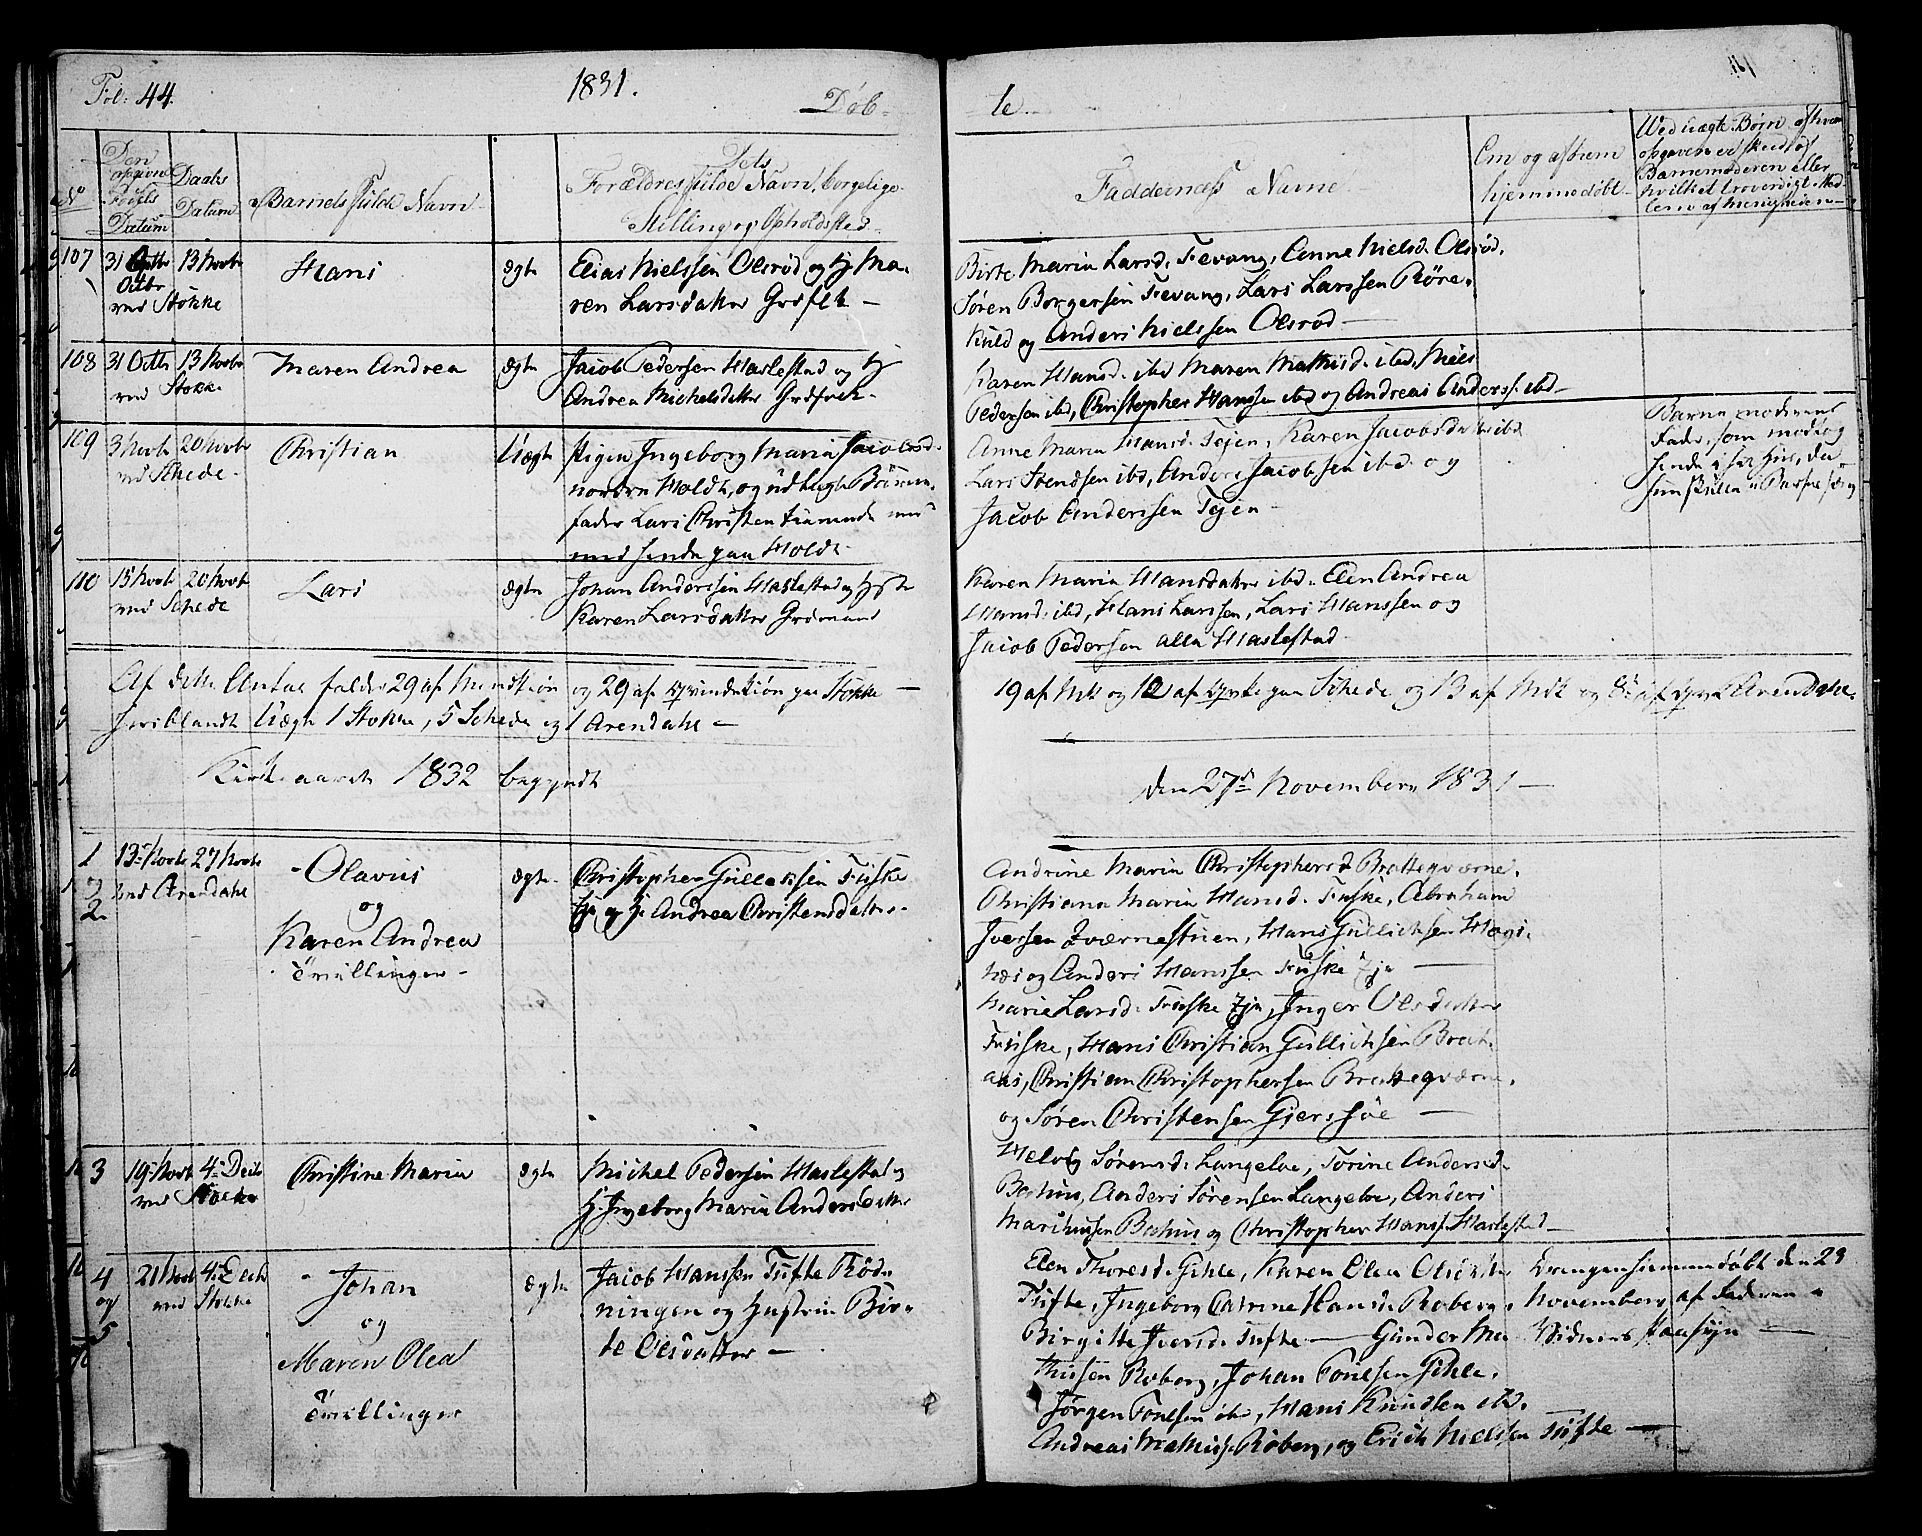 Fol: 44.
1831.
Døb-
te.
No
Den
opgivne
Fødsels
Datum
Daabs
Datum
Barnets fulde Navn
Dets
Forældres fulde Navn, borgelige
Stilling og Opholdssted
Faddernes Navne
Om og af hvem
hjemmedøbt
Ved uægte Børn af hvem
opgaven er skeedt af
Barnemoderen eller
hvilket troværdigt Med
lem af Menigheden
107
31
Octbr
ved Stokke
13 Novbr
Hans
ægte
Elias Nielssen Olsrød og Hj Ma-
ren Larsdatter Grdfolk —
Birte Maria Larsd. Fevang, Anne Nielsd. Olsrød,
Søren Borgersen Fevang, Lars Larssen Røre-
kuld og Anders Nielssen Olsrød
108
31 Octbr
ved Stokke
13 Novbr
Maren Andrea
ægte
Jacob Pedersen Haslestad og Hj
Andrea Michelsdatter Grdfolk.
Karen Hansd. ibd Maren Mathisd. ibd, Niels
Pedersen ibd, Christopher Hanssen ibd og Andreas Anderss. ibd
109
3 Novb 20 Novbr
ved Skede.
Christian
Uægte
Pigen Ingeborg Maria Jacobsd.
nordre Holdt, og udlagt Barne-
fader Lars Christen tienende
med hende paa Holdt.
Anne Maria Hansd. Tejen, Karen Jacobsdatter ibd
Lars Svendsen ibd, Anders Jacobsen ibd og
Jacob Anderssen Tejen
Barnemoderens
Fader, som modtog
hende i sit Huus, da
hun skulde i Barselsæng
110
15 Novb 20 Novb
ved Schede
Lars
ægte
Johan Anderssen Haslestad og Hj
Karen Larsdatter Grdmand
Karen Maria Hansdatter ibd. Elen Andrea
Hansd. ibd, Hans Larssen, Lars Hanssen og
Jacob Pedersen alle Haslestad
Af dette Antal falder 29 af Mandkiøn og 29 af Qvindekiøn paa Stokke —
19 af Mk og 12 af Qvk paa Schede og 13 af Mdk og 8 af Qvk Arendahl.
hvoriblandt Uægte 1 Stokke, 5 Schede og 1 Arendahl —
Kirkeaaret 1832 begyndt
den 27de November 1831 —
1
2
13 Novb 27 Novb
ved Arendahl
Olavus
og
Karen Andrea
Tvillinger
ægte
Christopher Gullessen Fuske
Eje og Hj. Andrea Christensdatter
Andrine Maria Christophersd. Bratteqværne.
Christiana Maria Hansd. Fuske, Abraham
Iversen Qværnestuen, Hans Gullichsen Hegs-
næs og Anders Hanssen Fuske Eje
Marie Larsd. Fuske Eje, Inger Olsdatter
Fuske, Hans Christian Gullichsen Breit-
aas, Christian Christophersen Bratteqværne,
og Søren Christensen Gjersøe —
3
19 Novb 4 Decb
ved Stokke
Christine Maria
ægte
Michel Pedersen Haslestad og
Hj. Ingeborg Maria Andersdatter
Helvig Sørensd. Langeløe, Torine Andersd.
Bachus, Anders Sørensen Langeløe, Anders
Marchussen Bachus og Christopher Hanss. Haslestad
4
og
5
21 Novb 4 Decb
ved Stokke
Johan
og
Maren Olea
Tvillinger
ægte
Jacob Hanssen Tufte Rød-
ningen og Hustrue Bir-
te Olsdatter —
Elen Thoresd. Gihle, Karen Elea Olsdatter
Tufte, Ingeborg Catrine Hansd. Roberg,
Birgitte Iversd. Tufte — Gunder Ma-
thisen Roberg, Johan Tonesen Gihle,
Jørgen Tonesen ibd, Hans Knudsen ibd.
Andreas Mathiss. Roberg, og Erich Nielssen Tufte —
Drengen hiemmedøbt den 29
November af Faderen i
Vidners Paasyn —